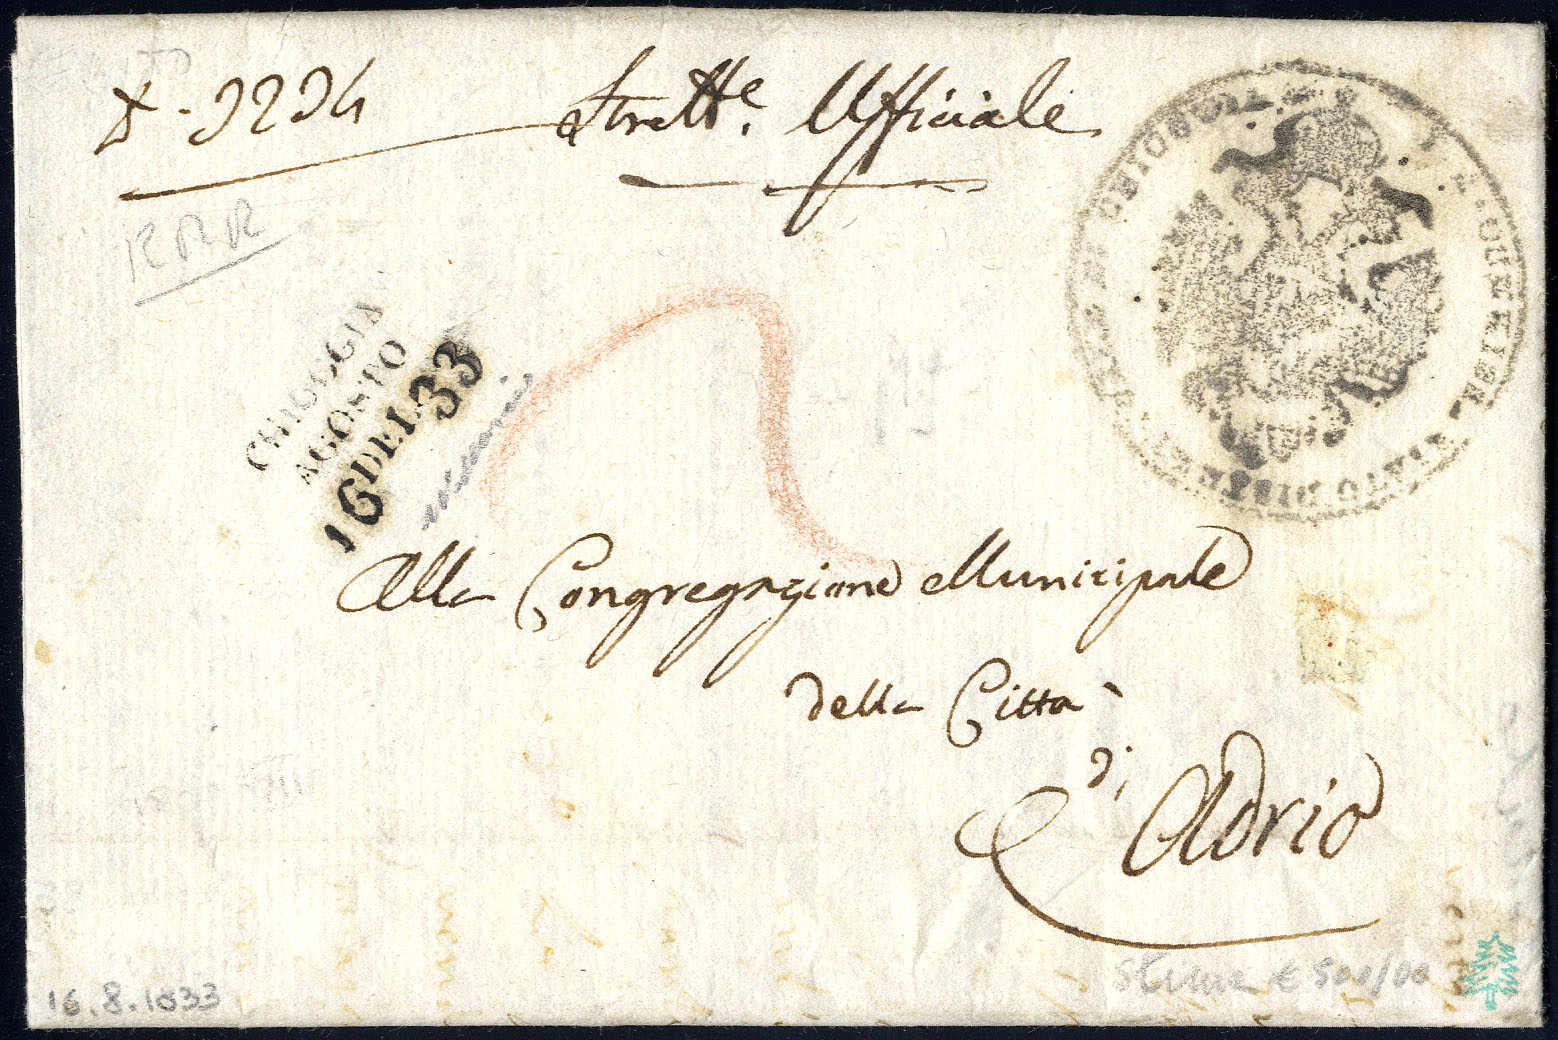 N. 3234 Strett.e Ufficiale
RRR
CHIOGGIA
AGOSTO
16 DEL 33
Alla Congregazione Municipale
della Città
di Adria
16.8.1833
€ 500/00
CHIOGGIA